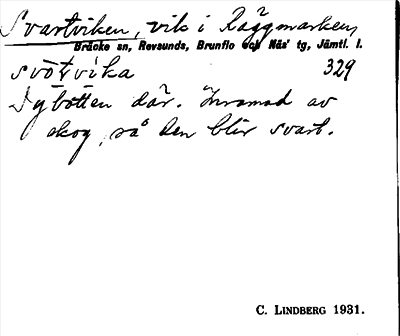 Svartviken, vik i Räggmarken,
Bräcke sn, Revsunds, Brunflo och Näs' tg, Jämtl. l.
svo̅tvika 329
Dybotten där. Inramad av
skog, så den blir svart.
C. LINDBERG 1931.